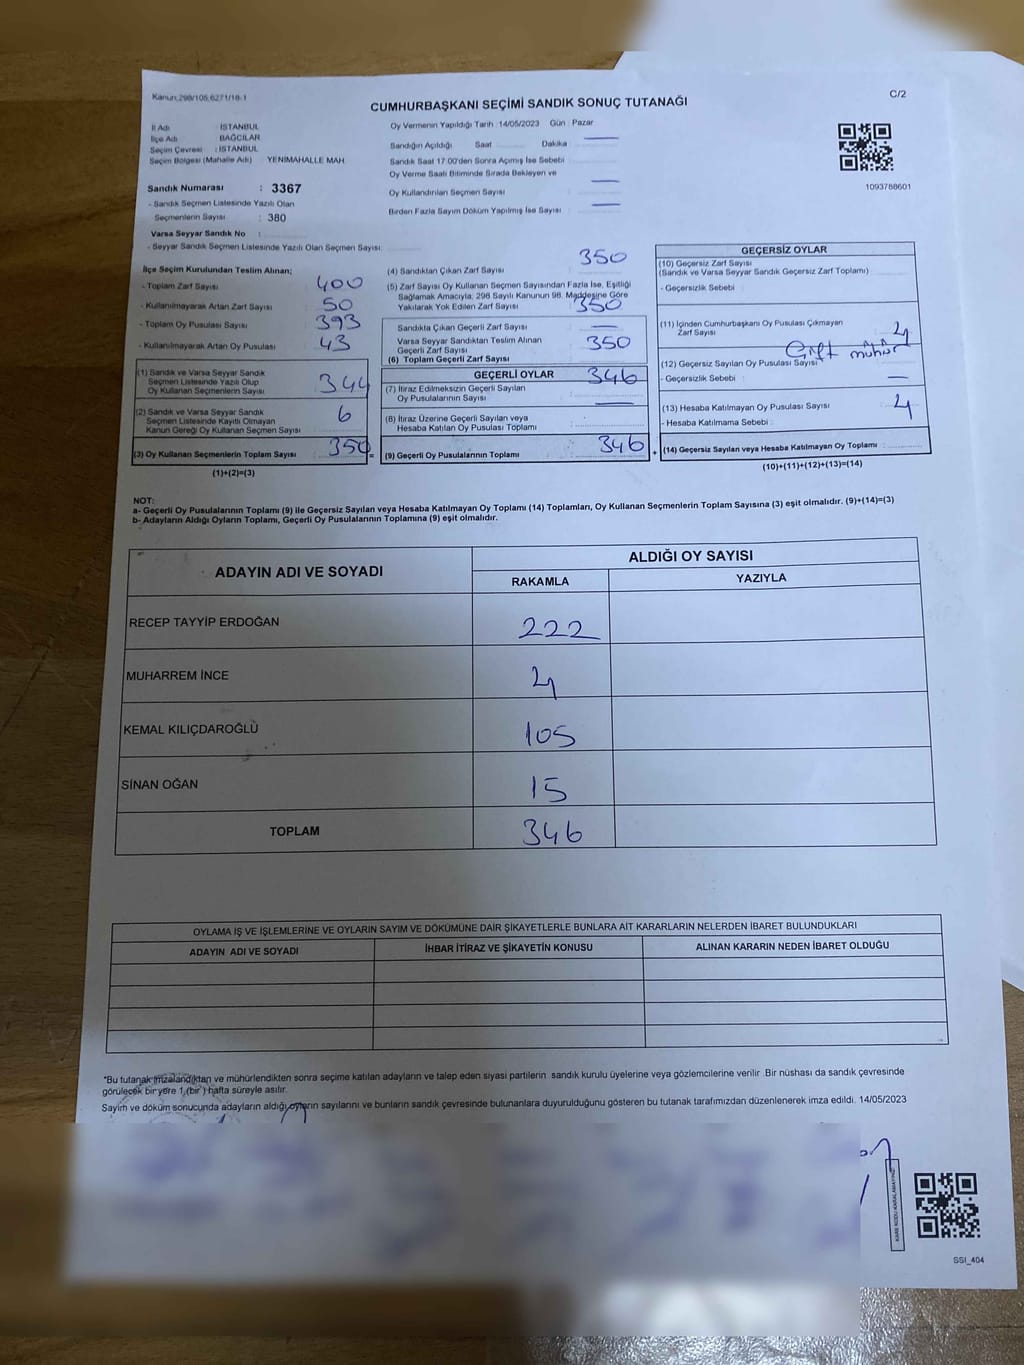 Kanun:298/105,6271/18-1
C/2
CUMHURBAŞKANI SEÇİMİ SANDIK SONUÇ TUTANAĞI
İl Adı : İSTANBUL
İlçe Adı : BAĞCILAR
Seçim Çevresi : İSTANBUL
Seçim Bölgesi (Mahalle Adı) YENİMAHALLE MAH.
Sandık Numarası : 3367
- Sandık Seçmen Listesinde Yazılı Olan
Seçmenlerin Sayısı : 380
Varsa Seyyar Sandık No :
- Seyyar Sandık Seçmen Listesinde Yazılı Olan Seçmen Sayısı:
Oy Vermenin Yapıldığı Tarih :14/05/2023 Gün : Pazar
Sandığın Açıldığı Saat Dakika
Sandık Saat 17.00'den Sonra Açılmış İse Sebebi :
Oy Verme Saati Bitiminde Sırada Bekleyen ve
Oy Kullandırılan Seçmen Sayısı :
Birden Fazla Sayım Döküm Yapılmış İse Sayısı :
1093788601
İlçe Seçim Kurulundan Teslim Alınan;
- Toplam Zarf Sayısı : 400
- Kullanılmayarak Artan Zarf Sayısı : 50
- Toplam Oy Pusulası Sayısı : 393
- Kullanılmayarak Artan Oy Pusulası : 43
(1) Sandık ve Varsa Seyyar Sandık
Seçmen Listesinde Yazılı Olup
Oy Kullanan Seçmenlerin Sayısı : 344
(2) Sandık ve Varsa Seyyar Sandık
Seçmen Listesinde Kayıtlı Olmayan
Kanun Gereği Oy Kullanan Seçmen Sayısı : 6
(3) Oy Kullanan Seçmenlerin Toplam Sayısı : 350 =
(1)+(2)=(3)
(4) Sandıktan Çıkan Zarf Sayısı : 350
(5) Zarf Sayısı Oy Kullanan Seçmen Sayısından Fazla İse, Eşitliği
Sağlamak Amacıyla; 298 Sayılı Kanunun 98. Maddesine Göre
Yakılarak Yok Edilen Zarf Sayısı : 350
Sandıkta Çıkan Geçerli Zarf Sayısı :
Varsa Seyyar Sandıktan Teslim Alınan
Geçerli Zarf Sayısı : 350
(6) Toplam Geçerli Zarf Sayısı
GEÇERLİ OYLAR
(7) İtiraz Edilmeksizin Geçerli Sayılan 346
Oy Pusulalarının Sayısı :
(8) İtiraz Üzerine Geçerli Sayılan veya
Hesaba Katılan Oy Pusulası Toplamı :
(9) Geçerli Oy Pusulalarının Toplamı : 346 +
GEÇERSİZ OYLAR
(10) Geçersiz Zarf Sayısı
(Sandık ve Varsa Seyyar Sandık Geçersiz Zarf Toplamı) :
- Geçersizlik Sebebi :
(11) İçinden Cumhurbaşkanı Oy Pusulası Çıkmayan
Zarf Sayısı : 4
Çift mühür
(12) Geçersiz Sayılan Oy Pusulası Sayısı :
- Geçersizlik Sebebi :
(13) Hesaba Katılmayan Oy Pusulası Sayısı : 4
- Hesaba Katılmama Sebebi :
(14) Geçersiz Sayılan veya Hesaba Katılmayan Oy Toplamı :
(10)+(11)+(12)+(13)=(14)
NOT:
a- Geçerli Oy Pusulalarının Toplamı (9) ile Geçersiz Sayılan veya Hesaba Katılmayan Oy Toplamı (14) Toplamları, Oy Kullanan Seçmenlerin Toplam Sayısına (3) eşit olmalıdır. (9)+(14)=(3)
b- Adayların Aldığı Oyların Toplamı, Geçerli Oy Pusulalarının Toplamına (9) eşit olmalıdır.
ADAYIN ADI VE SOYADI
ALDIĞI OY SAYISI
RAKAMLA YAZIYLA
RECEP TAYYİP ERDOĞAN 222
MUHARREM İNCE 4
KEMAL KILIÇDAROĞLU 105
SİNAN OĞAN 15
TOPLAM 346
OYLAMA İŞ VE İŞLEMLERİNE VE OYLARIN SAYIM VE DÖKÜMÜNE DAİR ŞİKAYETLERLE BUNLARA AİT KARARLARIN NELERDEN İBARET BULUNDUKLARI
ADAYIN ADI VE SOYADI İHBAR İTİRAZ VE ŞİKAYETİN KONUSU ALINAN KARARIN NEDEN İBARET OLDUĞU
*Bu tutanak imzalandıktan ve mühürlendikten sonra seçime katılan adayların ve talep eden siyasi partilerin sandık kurulu üyelerine veya gözlemcilerine verilir .Bir nüshası da sandık çevresinde
görülecek bir yere 1 (bir ) hafta süreyle asılır.
Sayım ve döküm sonucunda adayların aldığı oyların sayılarını ve bunların sandık çevresinde bulunanlara duyurulduğunu gösteren bu tutanak tarafımızdan düzenlenerek imza edildi. 14/05/2023
KARE KODU KARALAMAYINIZ
SSI_404